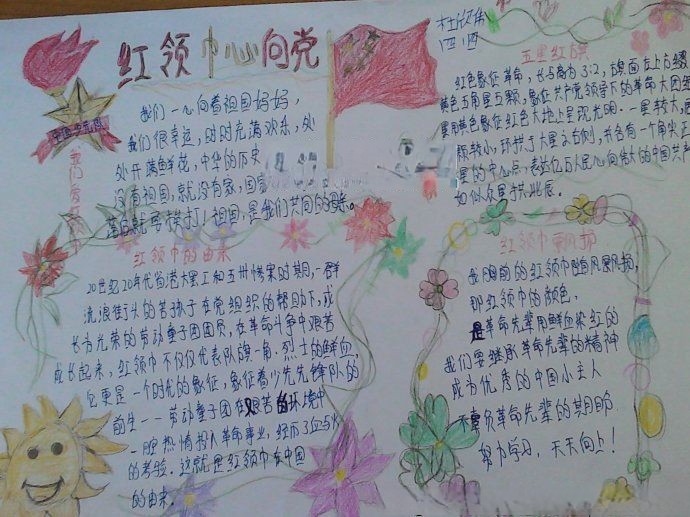 红领巾心向党
我们一心向着祖国妈妈，
我们很幸运，时时充满欢乐，处
处开满鲜花，中华的历史
没有祖国，就没有家，国
落后就要挨打！祖国，是我们共同的
我们爱
红领巾的由来
20世纪20年代省港大罢工和五卅惨案时期，一群
流浪街头的苦孩子在党组织的帮助下，成
长为光荣的劳动童子团团员，在革命斗争中艰苦
成长起来，红领巾不仅仅代表队旗一角，烈士的鲜血
它更是一个时代的象征，象征着少先先锋队的
前生——劳动童子团在艰苦的环境中
一腔热情投入革命事业，经历了血与火
的考验。这就是红领巾在中国
的由来。
四
五星红旗
红色象征革命，长与高为3:2，旗面左上方缀
黄色五角星五颗，象征共产党领导下的革命大团结
星用黄色象征红色大地上呈现光明。一星较大，
颗较小，环拱于大星之右侧，并各有一个角尖正
星的中心点，表达亿万人民心向伟大的中国共产
如似众星拱北辰。
红领巾飘扬
是胸前的红领巾随风飘扬，
那红领巾的颜色，
是革命先辈用鲜血染红的
我们要继承革命先辈的精神
成为优秀的中国小主人
不要负革命先辈的期盼
努力学习，天天向上！